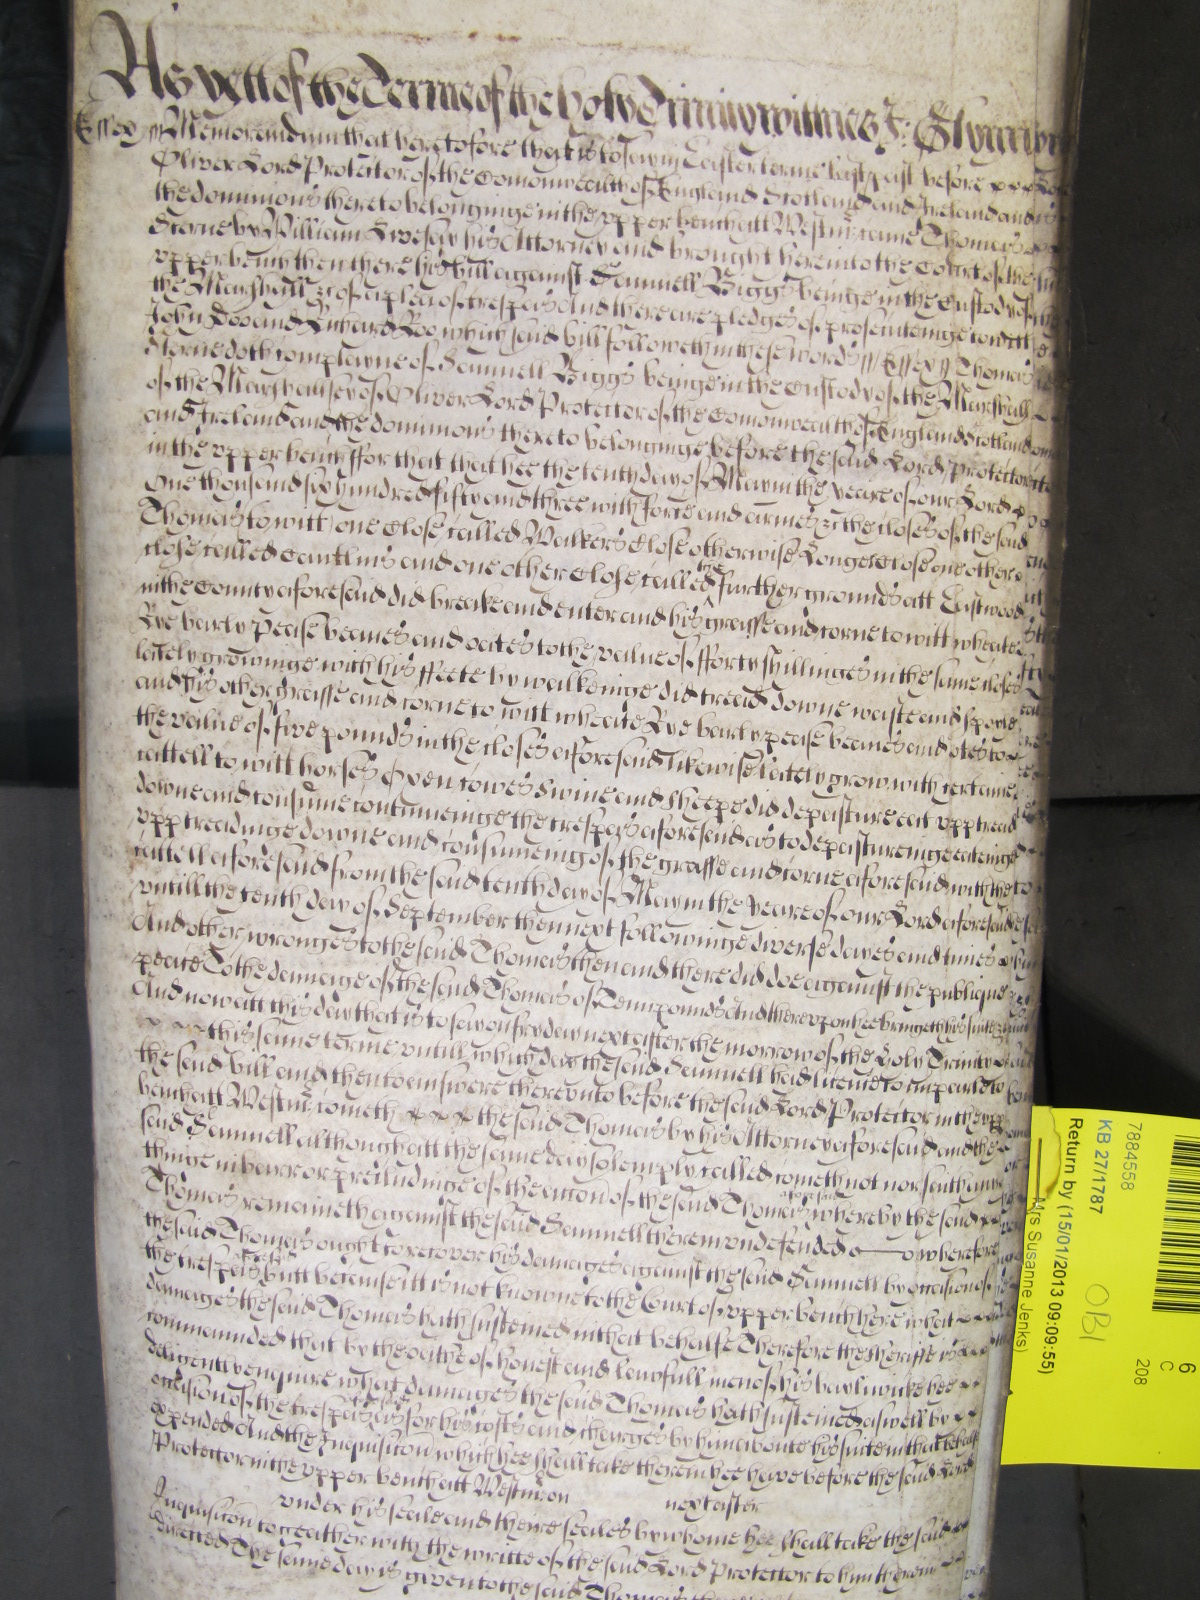 As yett of the Terme of the holy Trinity wittnes J: Glynn
Essex ss Memorandum that heretofore that is to say in Easter terme last past before
Oliver Lord Protector of the Comonwealth of England Scotland and Ireland and
the dominions thereto belonginge in the upper bench att Westmr came Thomas
Sterne by William Livesay his Attorney and brought here into the Court of the
upper bench then there his bill against Samuell Biggs beinge in the Custody of the
Marshall &c of a plea of trespas And there are pledges of prosecuteinge to witt
John Doo and Richard Roo which said bill followeth in these words ss Essex ss Thomas
Sterne doth complayne of Samuell Biggs beinge in the Custody of the Marshall
of the Marshalsey of Oliver Lord Protector of the Comonwealth of England Scotland
and Ireland and the dominions thereto belonginge before the said Lord Protector
in the upper bench ffor that that hee the tenth day of May in the yeare of our Lord
One thousand six hundred fifty and three with force and armes &c the closes of the said
Thomas to witt one Close called Walkers Close otherwise Longe Close one other
close called Cantlins and one other Close called the further grounds att Eastwood
in the County aforesaid did breake and enter and his grasse and corne to witt wheate
Rye barly pease beanes and oates to the value of fforty shillinges in the same closes
lately growinge with his ffeete by walkeinge did tread downe waste and spoyle
and his other grasse and corne to witt wheate Rye barly pease beanes and otes to
the value of five pounds in the closes aforesaid likewise lately grow. with certaine
cattell to witt horses Oxen cowes Swine and sheepe did depasture eat upp tread
downe and consume continueinge the trespas aforesaid as to depastureinge eateinge
upp treadinge downe and consumeing of the grasse and corne aforesaid with the
cattell aforesaid from the said tenth day of May in the yeare of our Lord aforesaid
untill the tenth day of September then next followinge diverse dayes and times
And other wronges to the said Thomas then and there did doe against the publique
peace To the damage of the said Thomas of Tenn pounds And thereupon hee bringeth his suite &c
And now att this day that is to say on fryday next after the morrow of the Holy Trinity
this same terme untill which day the said Samuell had licence to imparle to
the said bill and then to answere thereunto before the said Lord Protector in the upp
bench att Westmr cometh the said Thomas by his Attorney aforesaid and the
said Samuell although att the same day solemply called cometh not nor saith any
thinge in barr or precludinge of the accon of the said Thomas aforesaid whereby the said
Thomas remaineth against the said Samuell therein undefended wherefore
the said Thomas ought to recover his damages against the said Samuell by occasion of
the trespas aforesaid Butt because itt is not knowne to the Court of upper bench here what
damages the said Thomas hath susteined in that behalfe Therefore the Sheriffe is
commaunded that by the oathe of honest and lawfull men of his bayliwicke hee
deligently enquire what damages the said Thomas hath susteined aswell by
occasion of the trespas aforesaid as for his costs and charges by him about his suite in that behalf
expended And the Inquisicon which hee shall take therein hee have before the said Lord
Protector in the upper bench att Westmr on next after
under his seale and theire seales by whome hee shall take the said
Inquisicon togeather with the writte of the said Lord Protector to him therein
directed The same day is given to the said Thomas
7884558
KB 27/1787
Return by (15/01/2013 09:09:55)
Mrs Susanne Jenks)
OBI
6
C
208